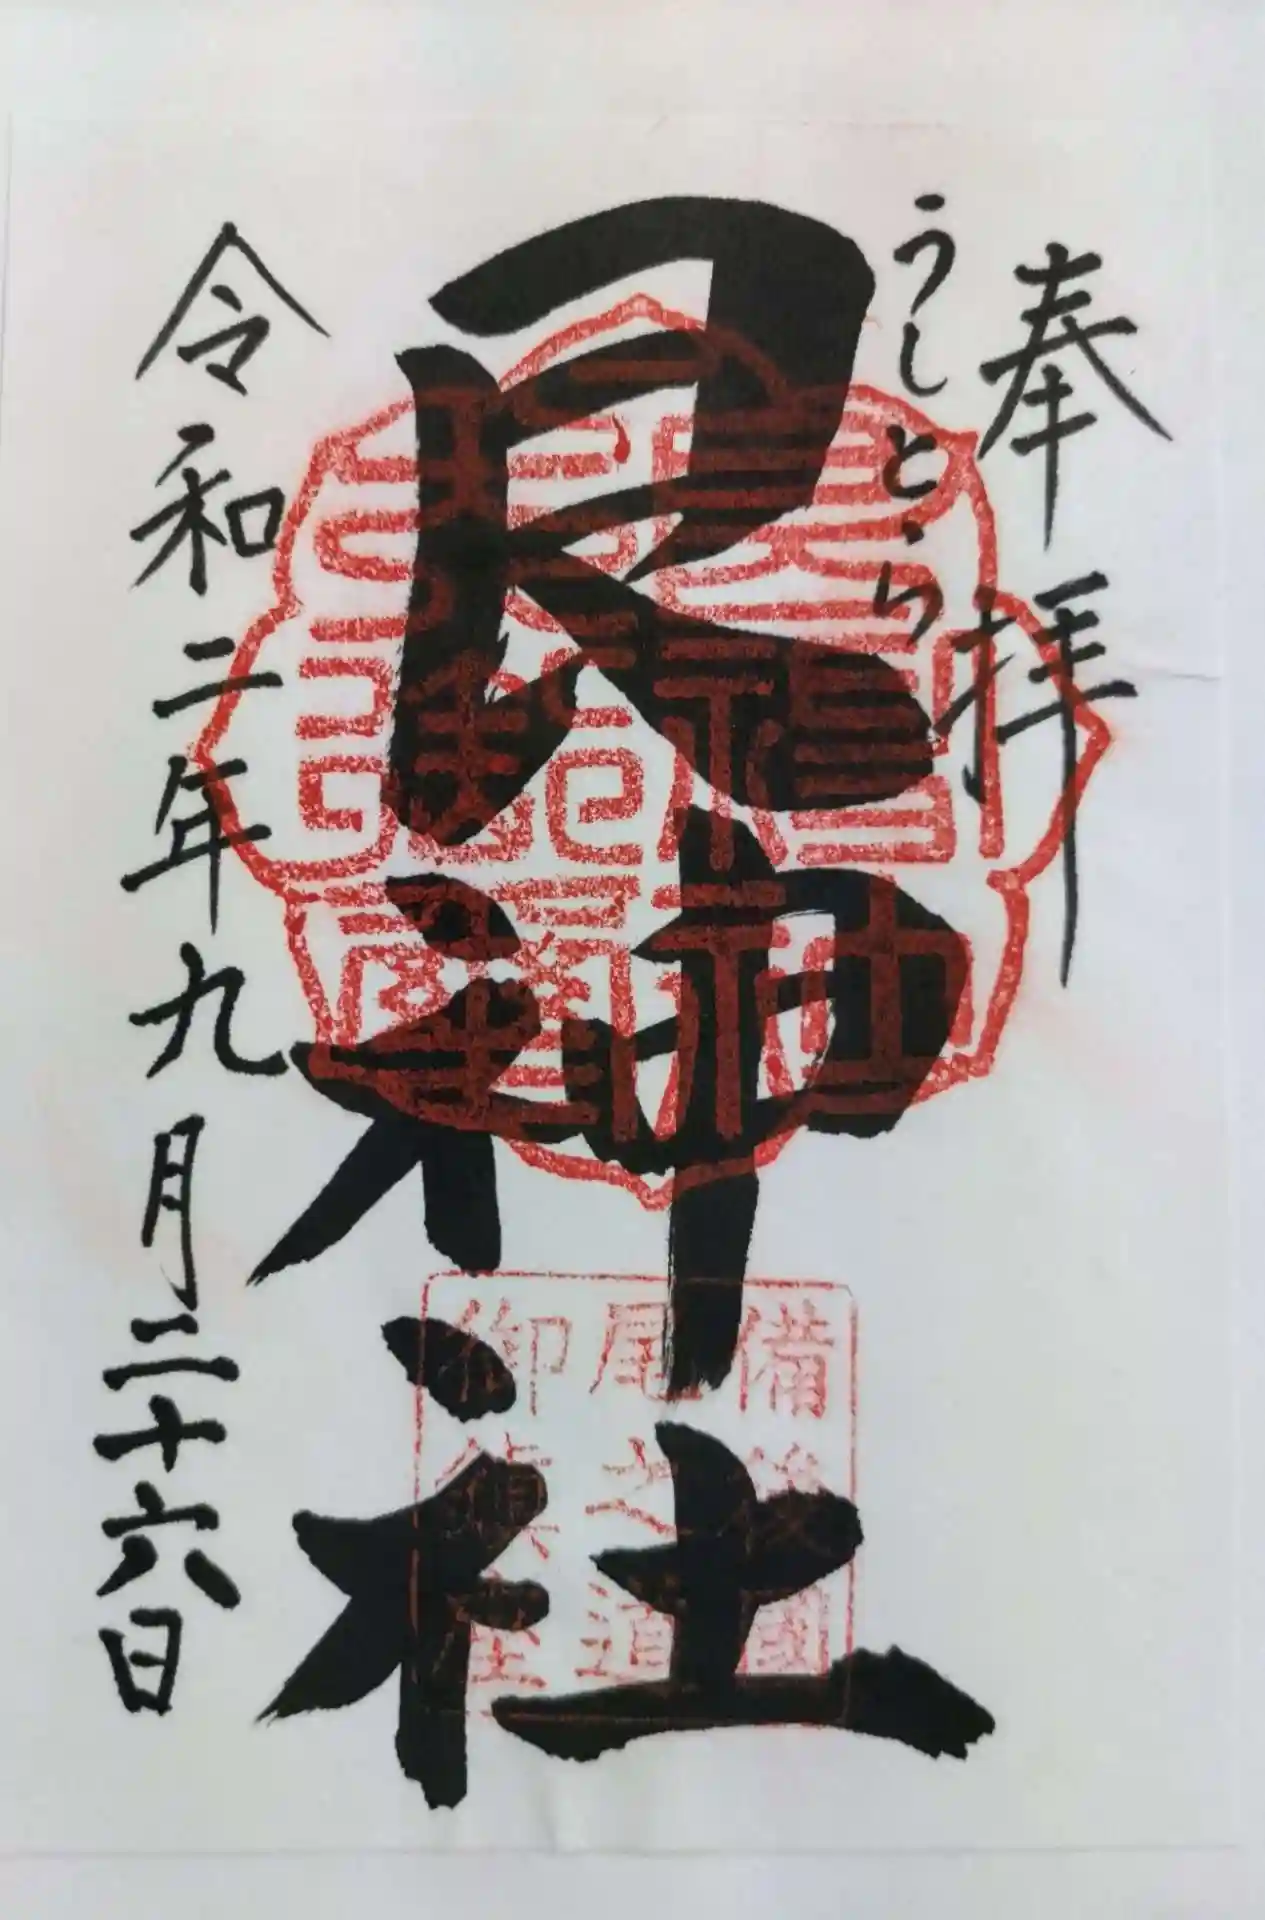 奉拝
うしとら
艮神社
備後國
尾之道
御鎮座
令和二年九月二十六日